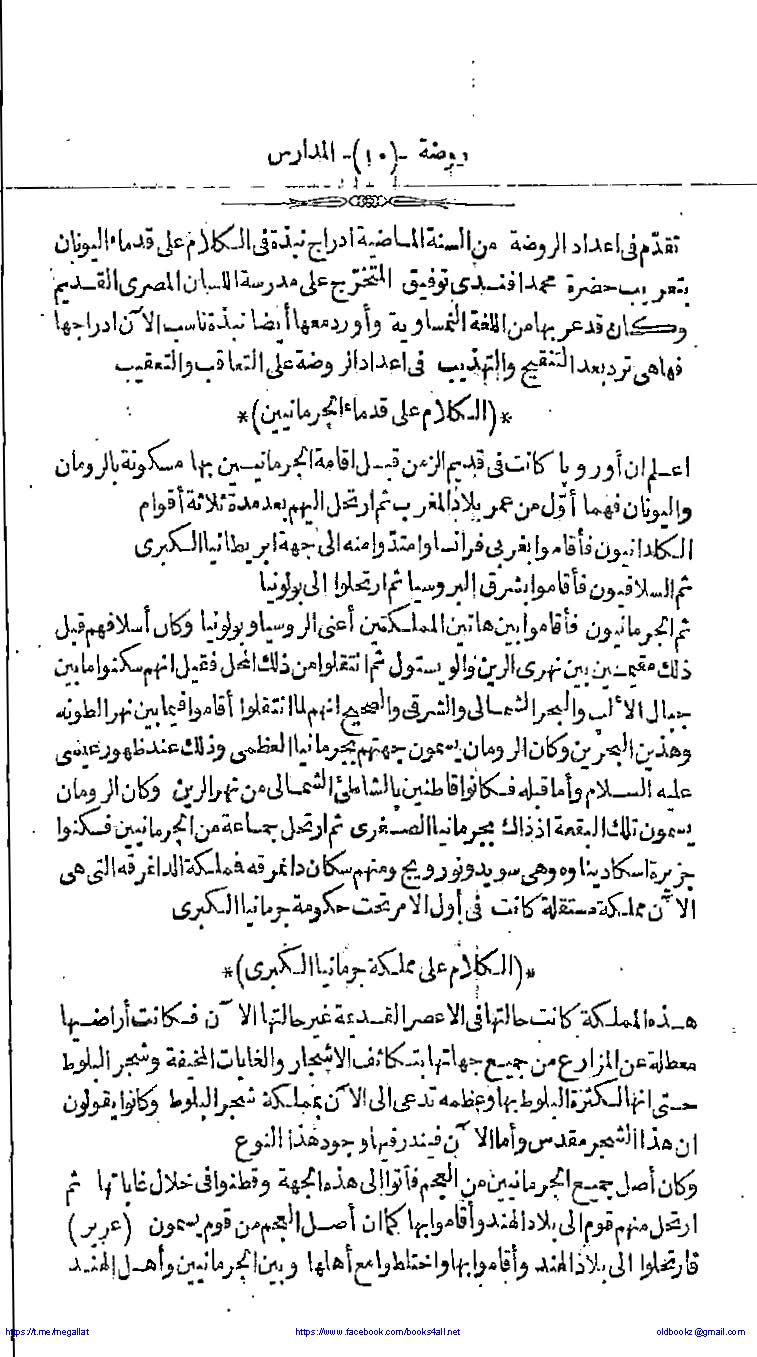 روضة -(١٠)- المدارس
تقدّم فى اعداد الروضة من السنة الماضية ادراج نبذة فى الكلام على قدماء اليونان
بتعريب حضرة محمد افندى توفيق المتخرّج على مدرسة اللسان المصرى القديم
وكان قد عربها من اللغة النمساوية وأورد معها أيضا نبذة ناسب الآن ادراجها
فها هى ترد بعد التنقيح والتهذيب فى اعداد الروضة على التعاقب والتعقيب
*(الكلام على قدماء الجرمانيين)*
اعلم ان أوروپا كانت فى قديم الزمن قبل اقامة الجرمانيين بها مسكونة بالرومان
واليونان فهما أوّل من عمر بلاد المغرب ثم ارتحل اليهم بعد مدة ثلاثة أقوام
الكلدانيون فأقاموا بغربى فرانسا وامتدّوا منه الى جهة ابريطانيا الكبرى
ثم السلافيون فأقاموا بشرقى البروسيا ثم ارتحلوا الى بولونيا
ثم الجرمانيون فأقاموا بين هاتين المملكتين أعنى الروسيا وبولونيا وكان أسلافهم قبل
ذلك مقيمين بين نهرى الرين والويستول ثم انتقلوا من ذلك المحل فقيل انهم سكنوا ما بين
جبال الألب والبحر الشمالى والشرقى والصحيح انهم لما انتقلوا أقاموا فيما بين نهر الطونه
وهذين البحرين وكان الرومان يسمون جهتهم بجرمانيا العظمى وذلك عند ظهور عيسى
عليه السلام وأما قبله فكانوا قاطنين بالشاطئ الشمالى من نهر الرين وكان الرومان
يسمون تلك البقعة اذ ذاك بجرمانيا الصغرى ثم ارتحل جماعة من الجرمانيين فسكنوا
جزيرة اسكاديناوه وهى سويد ونورويج ومنهم سكان دانمرقه فمملكة الدانمرقه التى هى
الآن مملكة مستقلة كانت فى أول الامر تحت حكومة جرمانيا الكبرى
*(الكلام على مملكة جرمانيا الكبرى)*
هذه المملكة كانت حالتها فى الاعصر القديمة غير حالتها الآن فكانت أراضيها
معطلة عن المزارع من جميع جهاتها بتكاثف الاشجار والغابات المخيفة وشجر البلوط
حتى انها لكثرة البلوط بها وعظمه تدعى الى الآن بمملكة شجر البلوط وكانوا يقولون
ان هذا الشجر مقدس وأما الآن فيندر فيها وجود هذا النوع
وكان أصل جميع الجرمانيين من العجم فأتوا الى هذه الجهة وقطنوا فى خلال غاباتها ثم
ارتحل منهم قوم الى بلاد الهند وأقاموا بها كما ان أصل العجم من قوم يسمون (عرير)
فارتحلوا الى بلاد الهند وأقاموا بها واختلطوا مع أهلها وبين الجرمانيين وأهل الهند
https://t.me/megallat
https://www.facebook.com/books4all.net
oldbookz@gmail.com